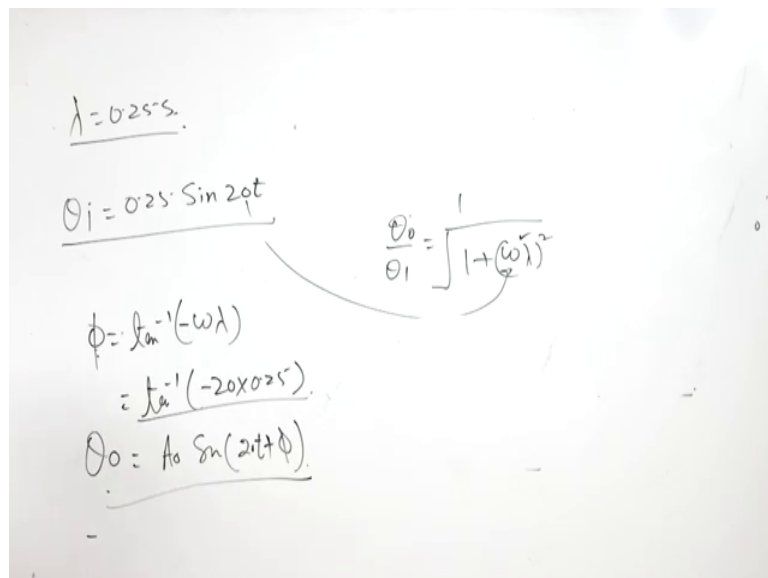 λ = 0.25 s.
θi = 0.25 Sin 20t
θo/θ1 = 1/√(1+(ωλ)²)
ϕ = tan⁻¹(-ωλ)
= tan⁻¹(-20×0.25).
θo = Ao Sin(20t+ϕ).